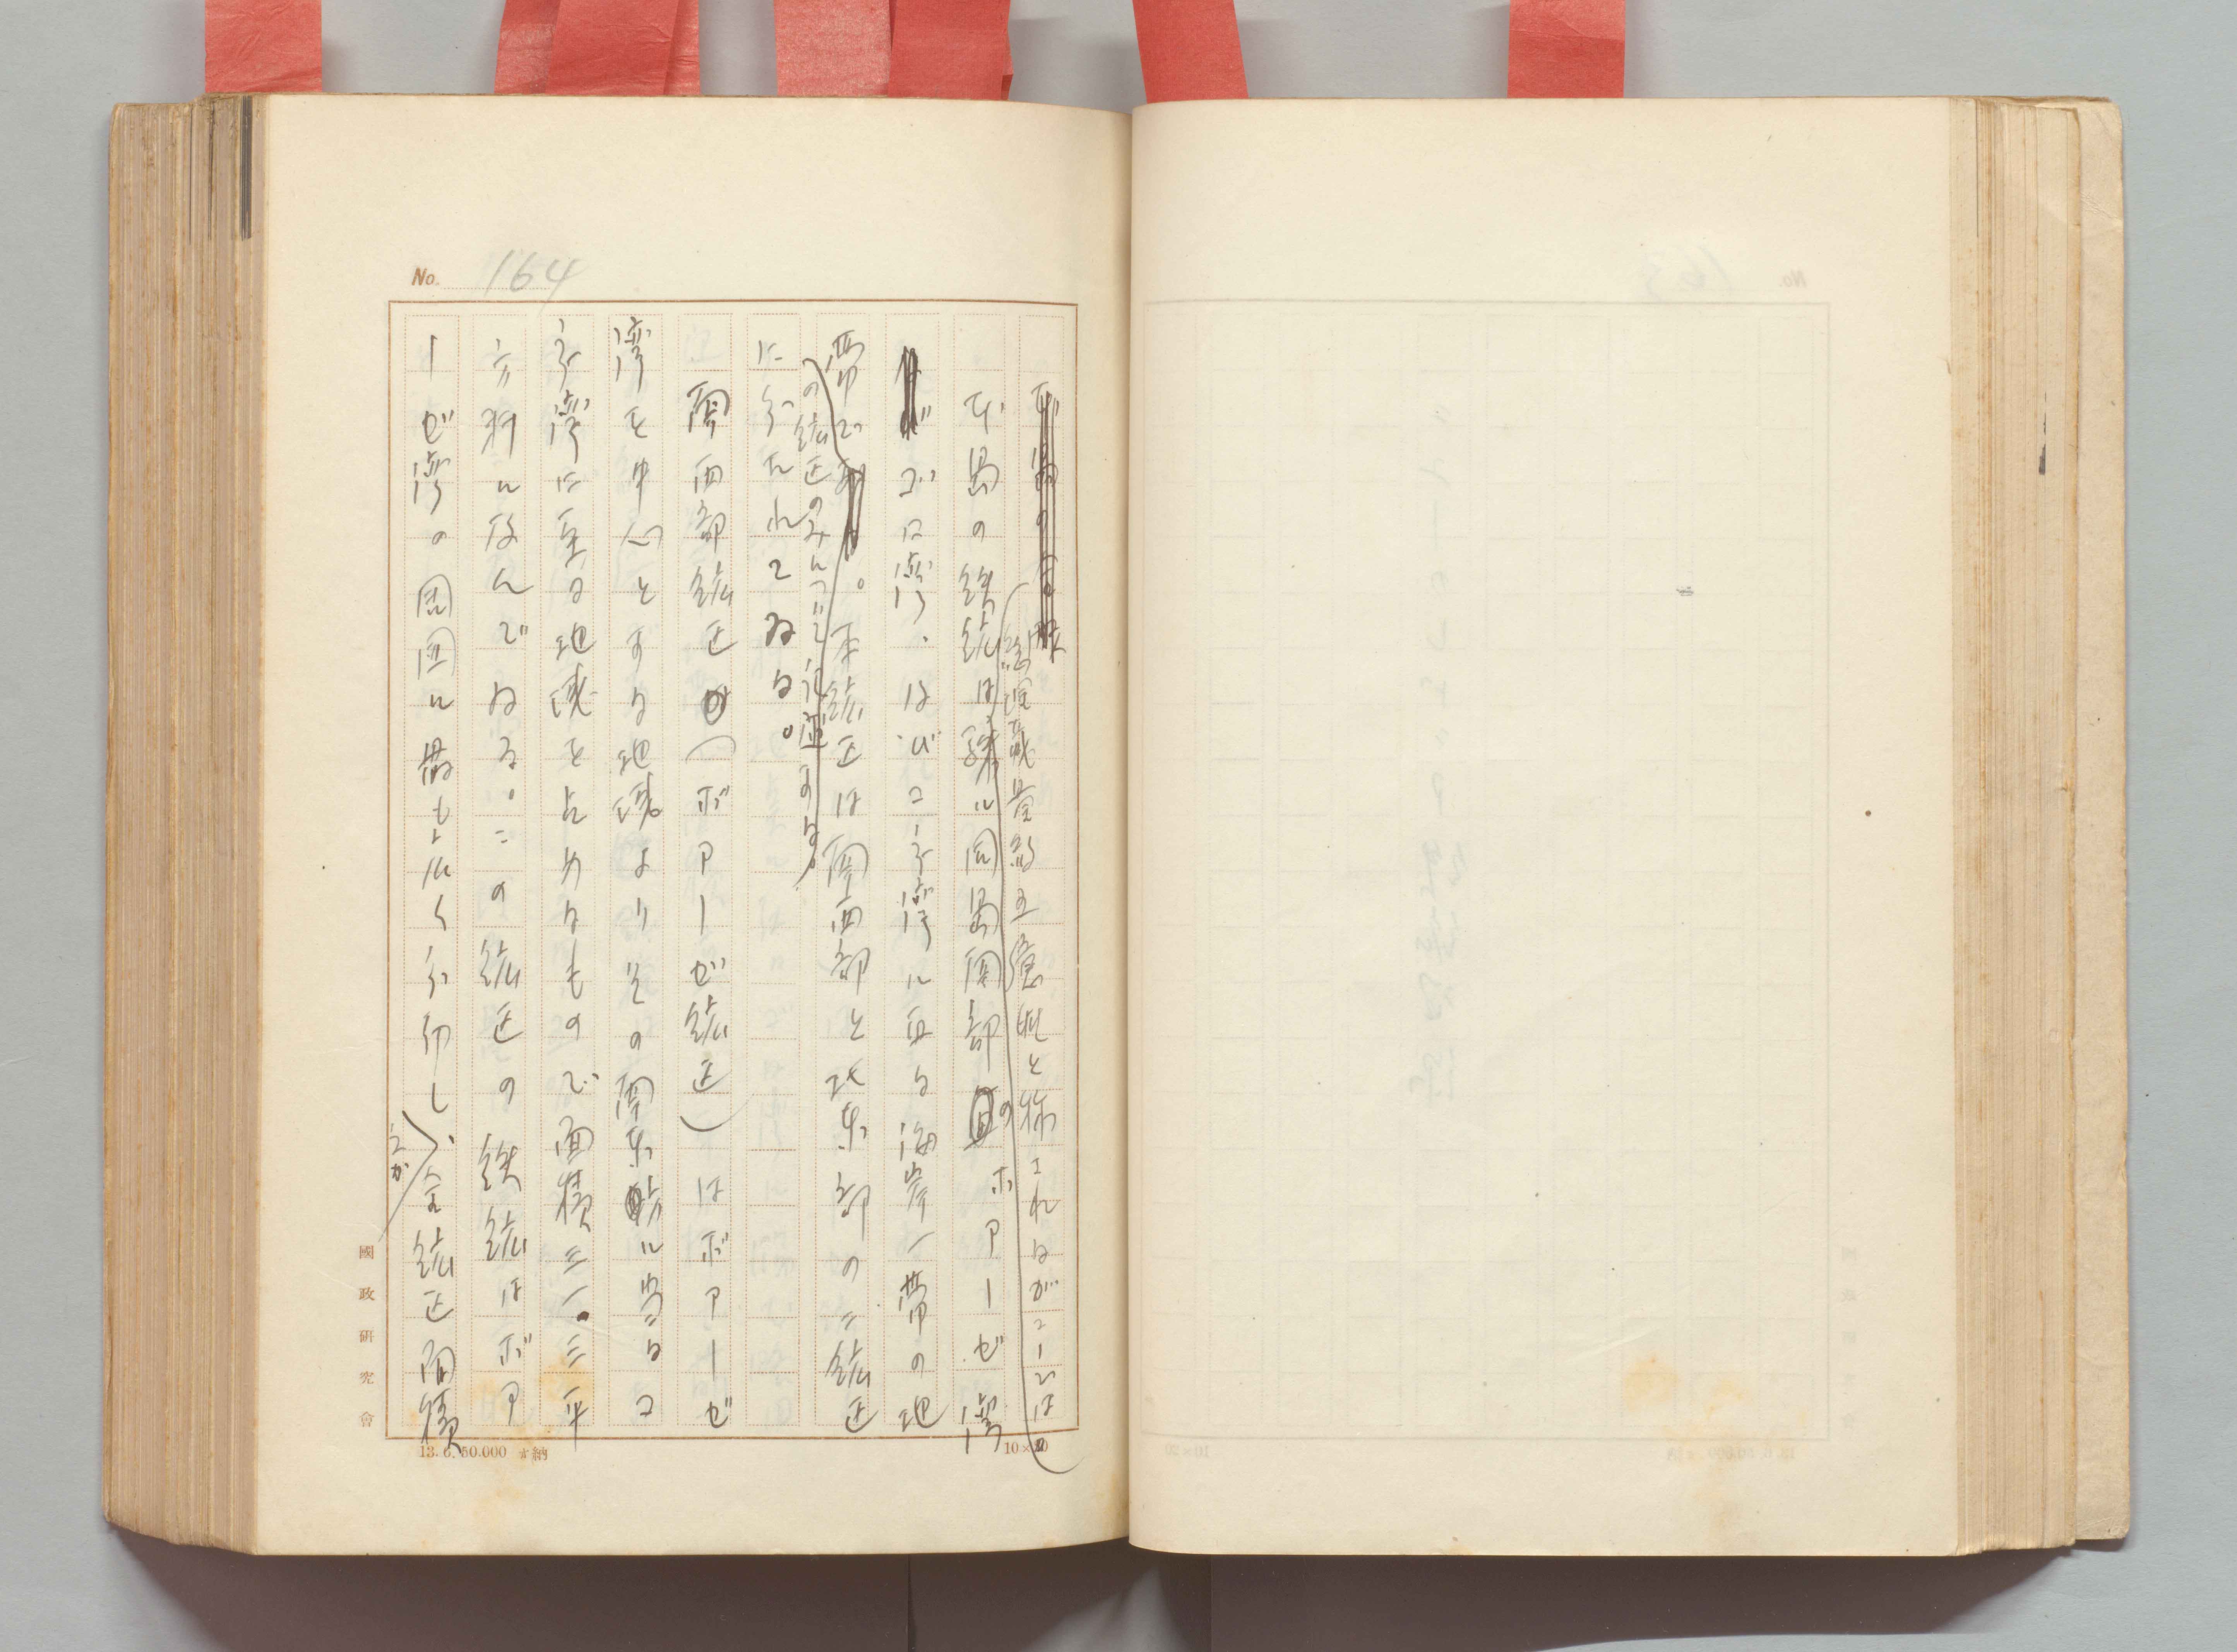 No. 164
総埋蔵量約五億瓲と称されるがこゝでは
本島の鉄鉱は殊に同島南部のボアーゼ湾
ゴロ湾、及びコネ湾に亘る海岸一帯の地
帯で 。本鉱区は南西部と北東部の二鉱区
の鉱区のみについて記述する。
に分たれてゐる。
南西部鉱区(ボアーゼ鉱区)はボアーゼ
湾を中心とする地域よりその南東 に当るコ
ネ湾に至る地域を占めるもので面積三一.三平
方粁に及んでゐる。この鉱区の鉄鉱はボア
ーゼ湾の周囲に最も広く分布し、全鉱区面積
國政研究會
13. 6. 50.000 納
10×20